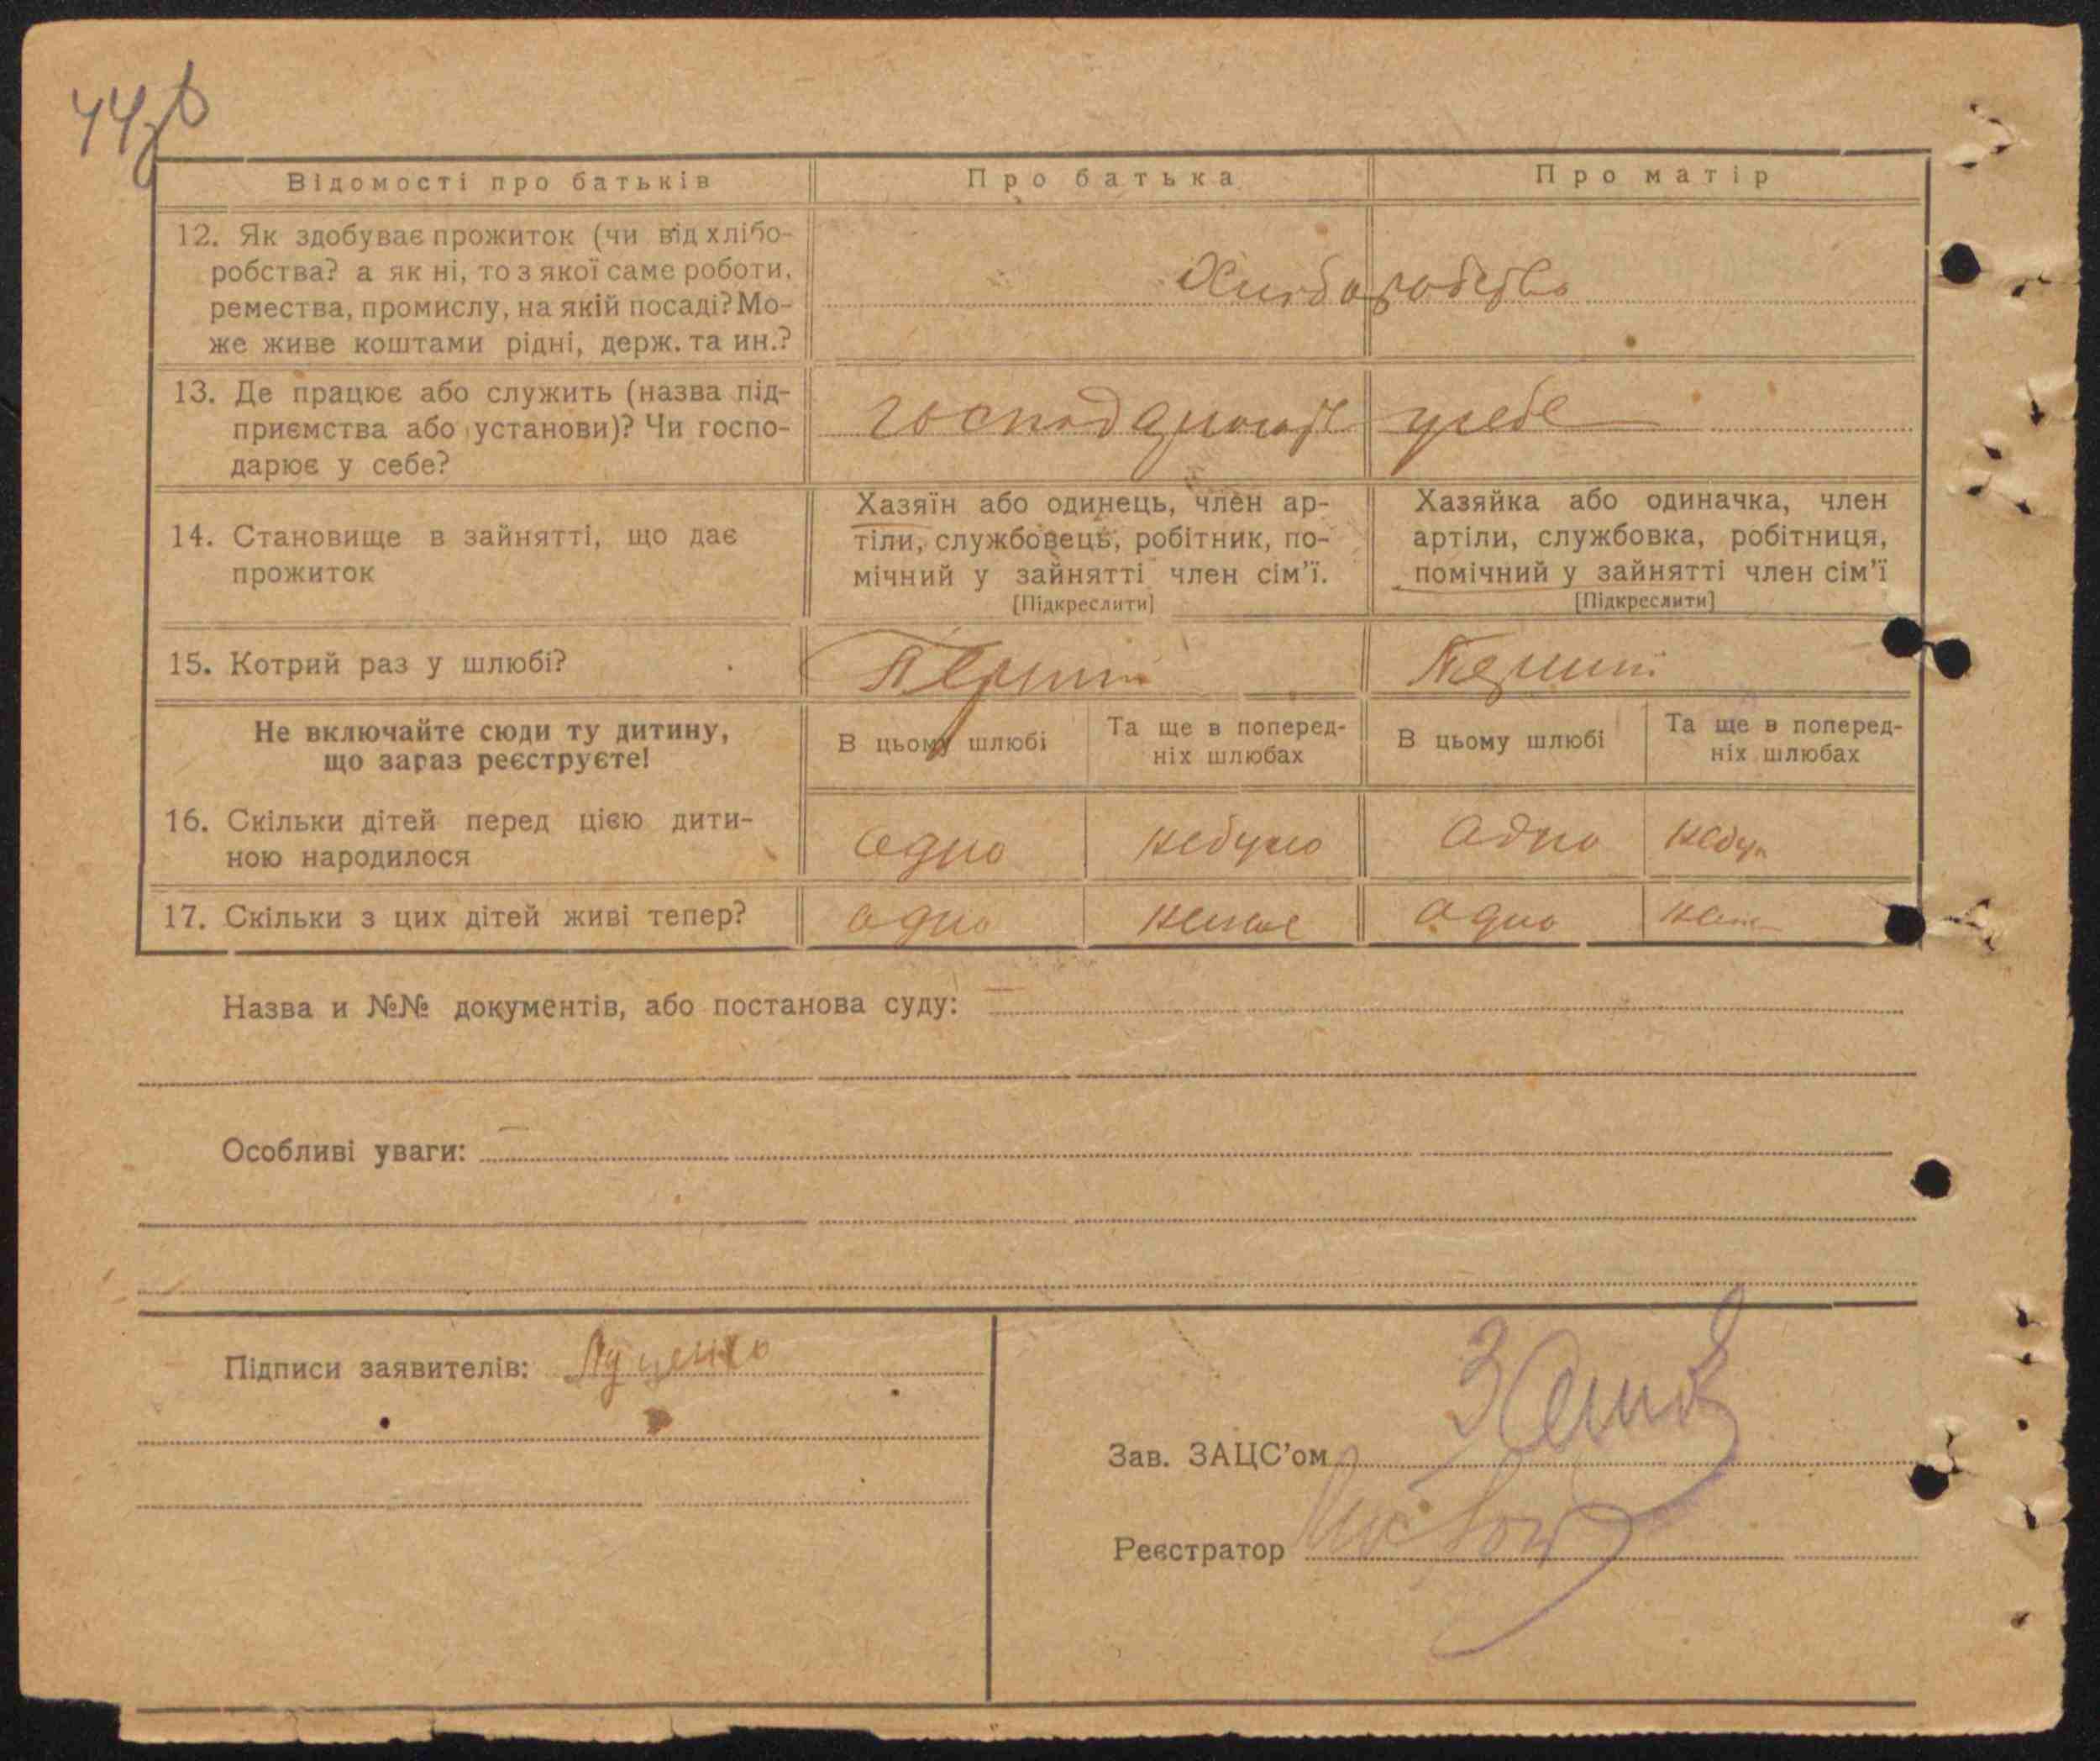 44
Відомості про батьків
Про батька
Про матір
12. Як здобуває прожиток (чи від хлібо-
робства? а як ні, то з якої саме роботи,
ремества, промислу, на якій посаді? Мо-
же живе коштами рідні, держ. та ин.?
13. Де працює або служить (назва під-
приємства або установи)? Чи госпо-
дарює у себе?
14. Становище в зайнятті, що дає
прожиток
Хазяїн або одинець, член ар-
тіли, службовець, робітник, по-
мічний у зайнятті член сім'ї.
[Підкреслити]
Хазяйка або одиначка, член
артіли, службовка, робітниця,
помічний у зайнятті член сім'ї
[Підкреслити]
15. Котрий раз у шлюбі?
Не включайте сюди ту дитину,
що зараз реєструєте!
В цьому шлюбі
Та ще в поперед-
ніх шлюбах
В цьому шлюбі
Та ще в поперед-
ніх шлюбах
16. Скільки дітей перед цією дити-
ною народилося
одно
небуло
одно
17. Скільки з цих дітей живі тепер?
одно
немае
одно
Назва и №№ документів, або постанова суду:
Особливі уваги:
Підписи заявителів: Луценко
Зав. ЗАЦС'ом
Реєстратор